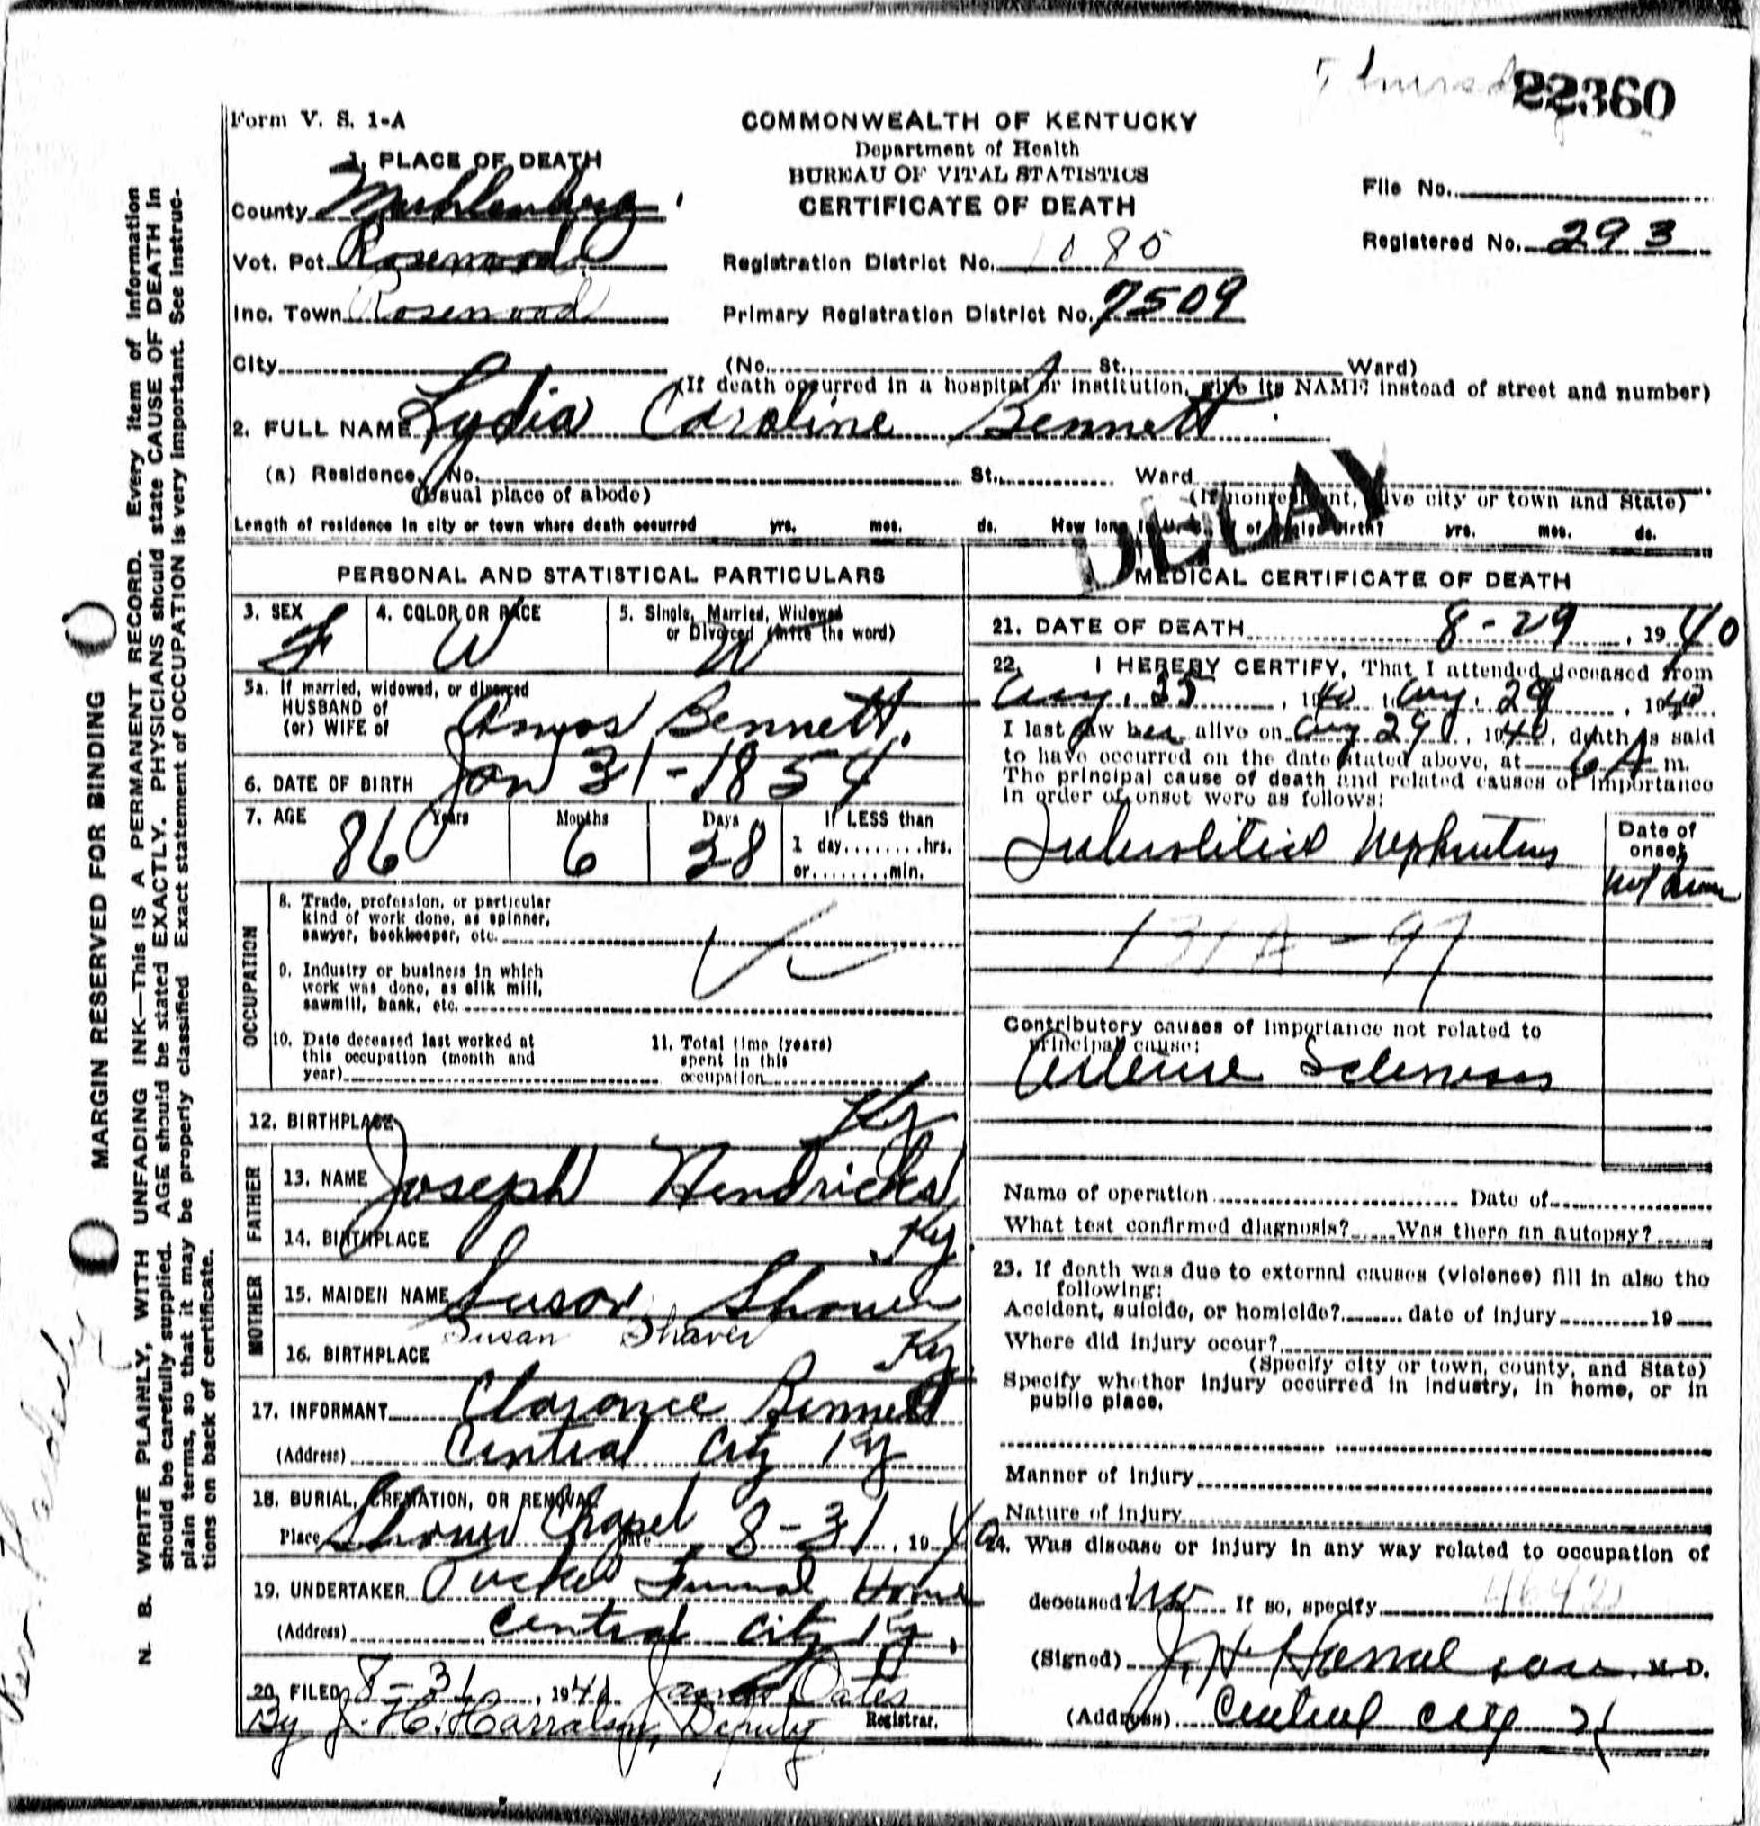 22360
Form V. S. 1-A
COMMONWEALTH OF KENTUCKY
Department of Health
BUREAU OF VITAL STATISTICS
CERTIFICATE OF DEATH
File No.
Registered No. 293
1. PLACE OF DEATH
County Muhlenberg
Vot. Pct. Rosewood
Inc. Town Rosewood
Registration District No. 1080
Primary Registration District No. 7509
City (No. St. Ward)
(If death occurred in a hospital or institution, give its NAME instead of street and number)
2. FULL NAME Lydia Caroline Bennett
(a) Residence. No. St., Ward
(Usual place of abode) (If nonresident, give city or town and State)
Length of residence in city or town where death occurred yrs. mos. ds. How long in U. S. if of foreign birth? yrs. mos. ds.
DELAY
PERSONAL AND STATISTICAL PARTICULARS
3. SEX F
4. COLOR OR RACE W
5. Single, Married, Widowed or Divorced (write the word) W
5a. If married, widowed, or divorced
HUSBAND of
(or) WIFE of Amos Bennett.
6. DATE OF BIRTH Jan 31-1854
7. AGE 86 Years 6 Months 28 Days If LESS than
1 day........hrs.
or........min.
OCCUPATION
8. Trade, profession, or particular
kind of work done, as spinner,
sawyer, bookkeeper, etc.
9. Industry or business in which
work was done, as silk mill,
sawmill, bank, etc.
10. Date deceased last worked at
this occupation (month and
year)
11. Total time (years)
spent in this
occupation
12. BIRTHPLACE Ky
FATHER
13. NAME Joseph Hendricks
14. BIRTHPLACE Ky
MOTHER
15. MAIDEN NAME Susan Shaver
Susan Shaver
16. BIRTHPLACE Ky
17. INFORMANT Clarance Bennett
(Address) Central City Ky
18. BURIAL, CREMATION, OR REMOVAL
Place Shaver Chapel Date 8-31, 1940
19. UNDERTAKER Tucker Funeral Home
(Address) Central City Ky.
20. FILED 8-31, 194 James Oates
By J. H. Harralson, Deputy Registrar.
MEDICAL CERTIFICATE OF DEATH
21. DATE OF DEATH 8-29, 1940
22. I HEREBY CERTIFY, That I attended deceased from
Aug. 25, 1940, Aug. 29, 1940
I last saw her alive on Aug 29, 1940, death is said
to have occurred on the date stated above, at 6 A m.
The principal cause of death and related causes of importance
in order of onset were as follows:
Date of
onset
Nephritis
131A-97
Contributory causes of importance not related to
principal cause:
Sclerosis
Name of operation Date of
What test confirmed diagnosis? Was there an autopsy?
23. If death was due to external causes (violence) fill in also the
following:
Accident, suicide, or homicide? date of injury 19
Where did injury occur?
(Specify city or town, county, and State)
Specify whether injury occurred in industry, in home, or in
public place.
Manner of injury
Nature of injury
24. Was disease or injury in any way related to occupation of
deceased? No If so, specify
(Signed) J. H. Harralson, M. D.
(Address) Central City Ky
MARGIN RESERVED FOR BINDING
N. B. WRITE PLAINLY, WITH UNFADING INK—This IS A PERMANENT RECORD. Every item of information
should be carefully supplied. AGE should be stated EXACTLY. PHYSICIANS should state CAUSE OF DEATH in
plain terms, so that it may be properly classified. Exact statement of OCCUPATION is very important. See instruc-
tions on back of certificate.